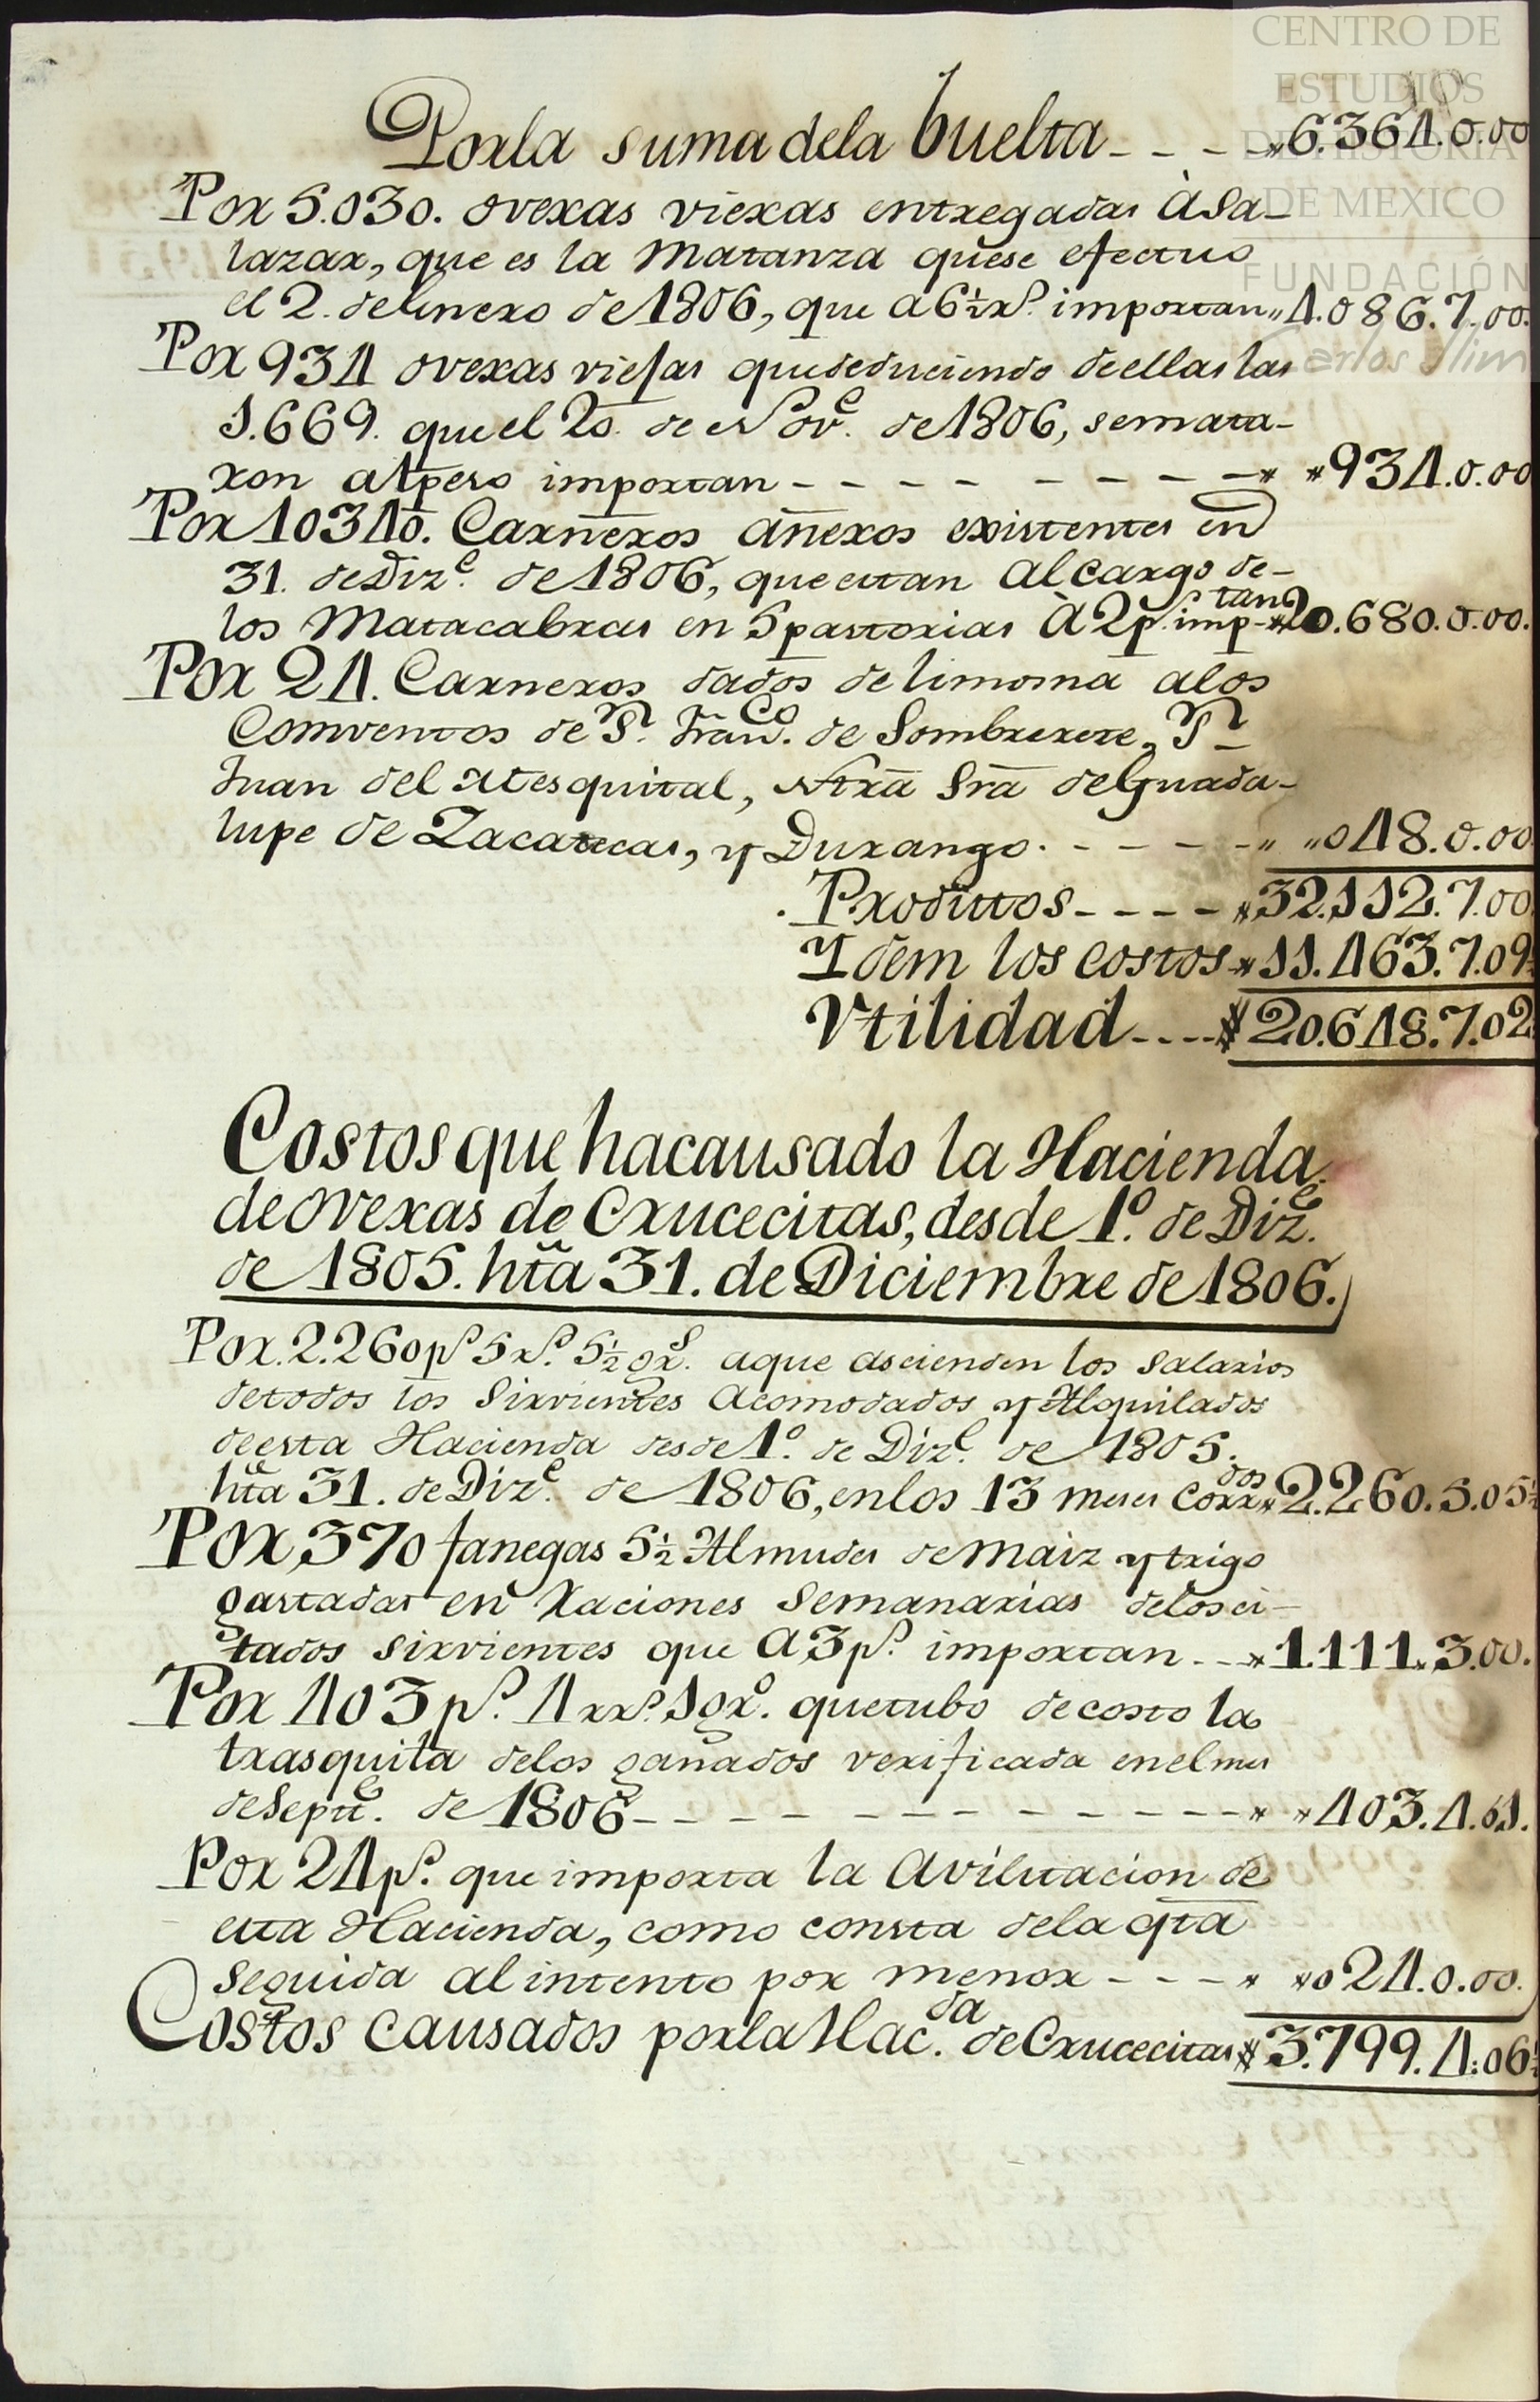 CENTRO DE
ESTUDIOS
DE HISTORIA
DE MEXICO
FUNDACIÓN
Carlos Slim
Porla suma dela buelta - - - - 6.364.0.00
Por 5.030. ovexas viexas entregadas à Sa-
lazar, que es la Matanza quese efectuo
el 2. de Enero de 1806, que a 6½ rs. importan " 4.086.7.00.
Por 934 ovexas viejas que deduciendo de ellas las
1.669. que el 20. de Nove. de 1806, se mata-
ron a 1 peso importan - - - - - - - - 934.0.00
Por 10340. Carneros añeros existentes en
31. de Dize. de 1806, que estan al cargo de-
los Matacabras en 5 pastorias à 2 ps. imp-tan 20.680.0.00.
Por 24. Carneros dados de limosna alos
Comventos de Sn. Franco. de Sombrerete, Sn
Juan del Mesquital, Ntra Sra de Guada-
lupe de Zacatecas, y Durango. - - - - " "048.0.00
Productos - - - - 32.112.7.00
Ydem los costos 11.463.7.09½
Vtilidad - - - - $ 20.648.7.02
Costos que hacausado la Hacienda
de ovexas de Crucecitas, desde 1º. de Dize.
de 1805. hta 31. de Diciembre de 1806.
Por. 2.260 ps 5 rs. 5½ grs. aque ascienden los salarios
detodos los Sirvientes Acomodados y Alquilados
de esta Hacienda desde 1º. de Dize. de 1805.
hta 31. de Dize. de 1806, en los 13 meses Corrdos 2.260.5.05½
Por, 370 fanegas 5½ Almudes de maiz y trigo
gastadas en Raciones Semanarias delos ci-
tados sirvientes que a 3 ps. importan - - 1.111.3.00.
Por 403 ps. 4 rrs. 1 gro. quetubo de costo la
trasquila delos ganados verificada en el mes
de Septe. de 1806 - - - - - - - - - - - - - 403.4.01.
Por 24 ps. que importa la Avilitacion de
esta Hacienda, como consta dela qta
seguida al intento por menor - - - 024.0.00.
Costos causados porla Hacda. de Crucecitas $ 3.799.4.06½